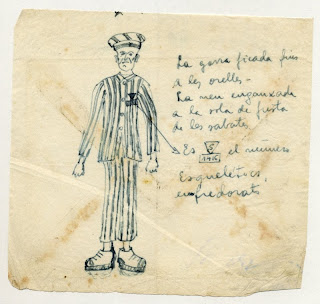 La gorra ficada fins
a les orelles -
La neu enganxada
a la sola de fusta
de les sabates
Es S el número
Esquelètics,
enfredorats